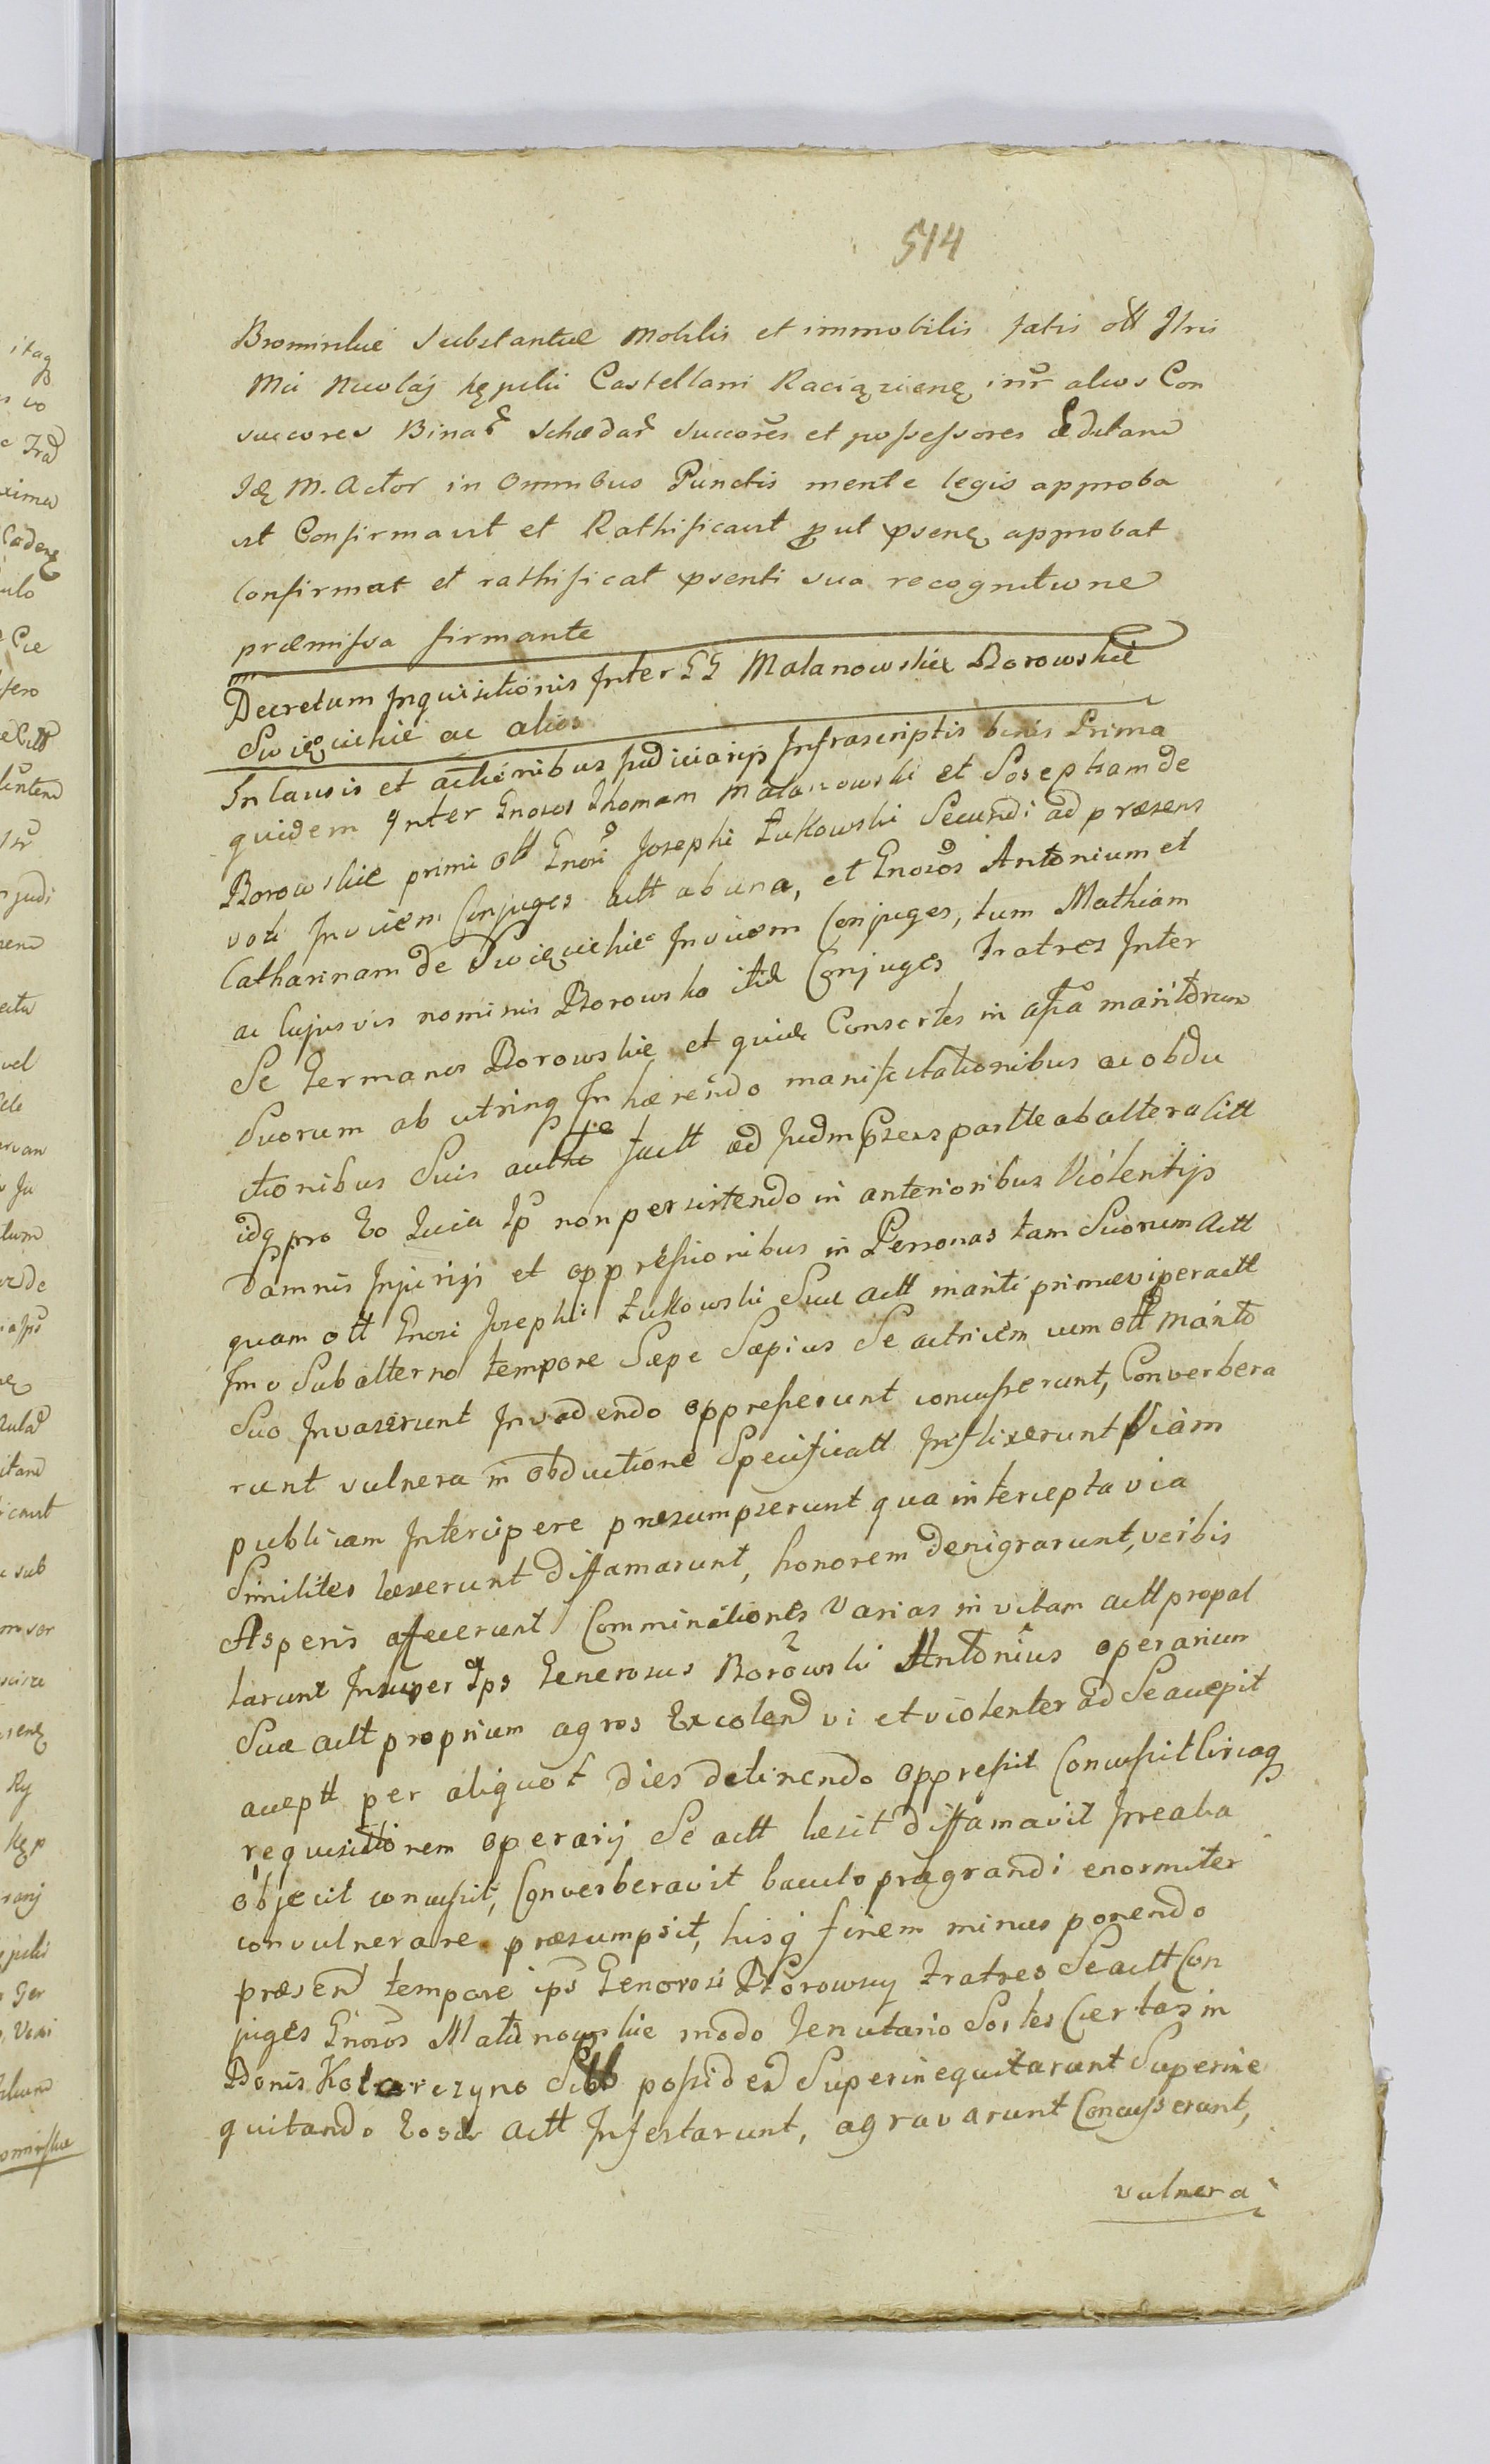 514
Brominskie substantiæ mobilis et immobilis fatis olt Ilris
Mći Nicolaj Kępski Castellani Raciązieñ inr alios Con
successores Binar schedar succores et possessores editam
Idę M. Actor in Omnibus Punctis mente legis approba
vit Confirmavit et Rathificavit prout psenę approbat
Confirmat et rathificat psenti sua recognitione
præmissa firmante
Decretum Inquisitionis Inter GG Malanowskie Borowskie
Święcickie ac alios
In Causis et actionibus Judiciarijs Infrascriptis binis Prima
quidem Inter Gnosos Thomam Malanowski et Josepham de
Borowskie primi olt Gnosi Josephi Łukowski Secundi ad præsens
voti Invicem Conjuges actt ab una, et Gnosos Antonium et
Catharinam de Swięcickie Invicem Conjuges, tum Mathiam
ac Cujusvis nominis Borowska itid Conjuges Fratres Inter
Se Germanos Borowskie et quidę Consortes in assa maritorum
Suorum ab utrinq Inhærendo manifestationibus ac obdu
ctionibus Suis authe factt ad Judm Præsens partte ab altera Citt
idq pro Eo Quia Ips non persistendo in anterioribus Violentijs
damnis Injurijs et oppressionibus in Personas tam Suorum Actt
quam olt Gnosi Josephi Łukowski Suæ actt mariti primævi peractt
Imo Subalterno tempore Sæpe Sæpius Se actricem cum olt Marito
Suo Invaserunt Invadendo oppresserunt concusserunt, Converbera
runt vulnera in obductione Specificatt Inflixerunt Viam
publicam Intercipere præsumpserunt qua intercepta via
Similiter læserunt diffamarunt, honorem denigrarunt, verbis
Asperis affecerunt Comminationes Varias in vitam actt propal
larunt Insuper Ips Generosus Borowski Antonius operarium
Suæ actt proprium agros Excolend vi et violenter ad Se accepit
acceptt per aliquot dies detinendo oppressit Concussit Circaq
requisitionem operarij Se actt læsit diffamavit Irrealia
objecit concussit, Converberavit baculo prægrandi enormiter
convulnerare præsumpsit, hisq finem minus ponendo
præsend tempore ips Generosi Borowscy Fratres Se actt Con
juges Gnosos Malanowskie modo Tenutario Sortes Certas in
Bonis Kolarczyno Sitt possidend Superinequitarunt Superine
quitando Eosd actt Infestarunt, agravarunt Concusserunt,
vulnera